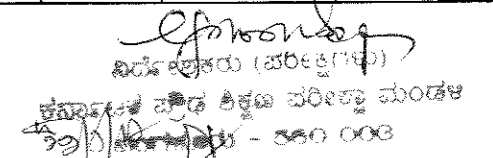 ನಿರ್ದೇಶಕರು (ಪರೀಕ್ಷೆಗಳು)
ಕರ್ನಾಟಕ ಪ್ರೌಢ ಶಿಕ್ಷಣ ಪರೀಕ್ಷಾ ಮಂಡಳಿ
- 560 003